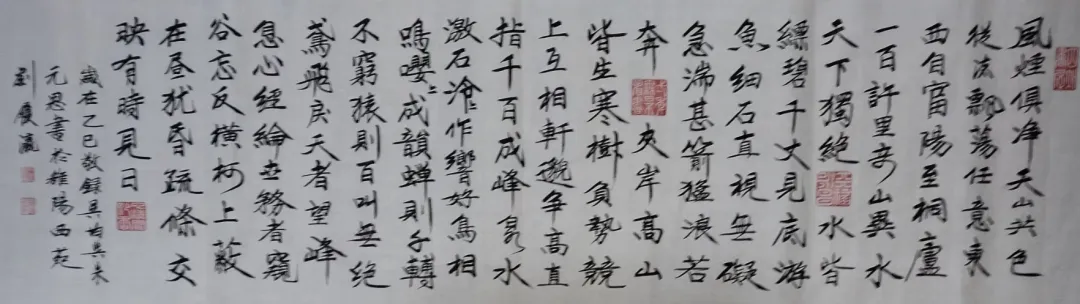 風煙俱净天山共色
從流飄蕩任意東
西自富陽至桐廬
一百許里奇山異水
天下獨絕水皆
縹碧千丈見底游
魚細石直視無礙
急湍甚箭猛浪若
奔夾岸高山
皆生寒樹負勢競
上互相軒邈爭高直
指千百成峰泉水
激石泠〻作響好鳥相
鳴嚶〻成韻蟬則千轉
不窮猿則百叫無絕
鳶飛戾天者望峰
息心經綸世務者窺
谷忘反橫柯上蔽
在晝猶昏疏條交
映有時見日
歲在乙巳敬錄吳均與朱
元思書於雒陽西苑